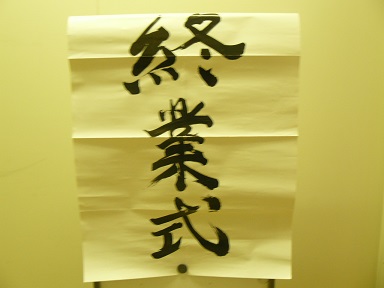 終業式